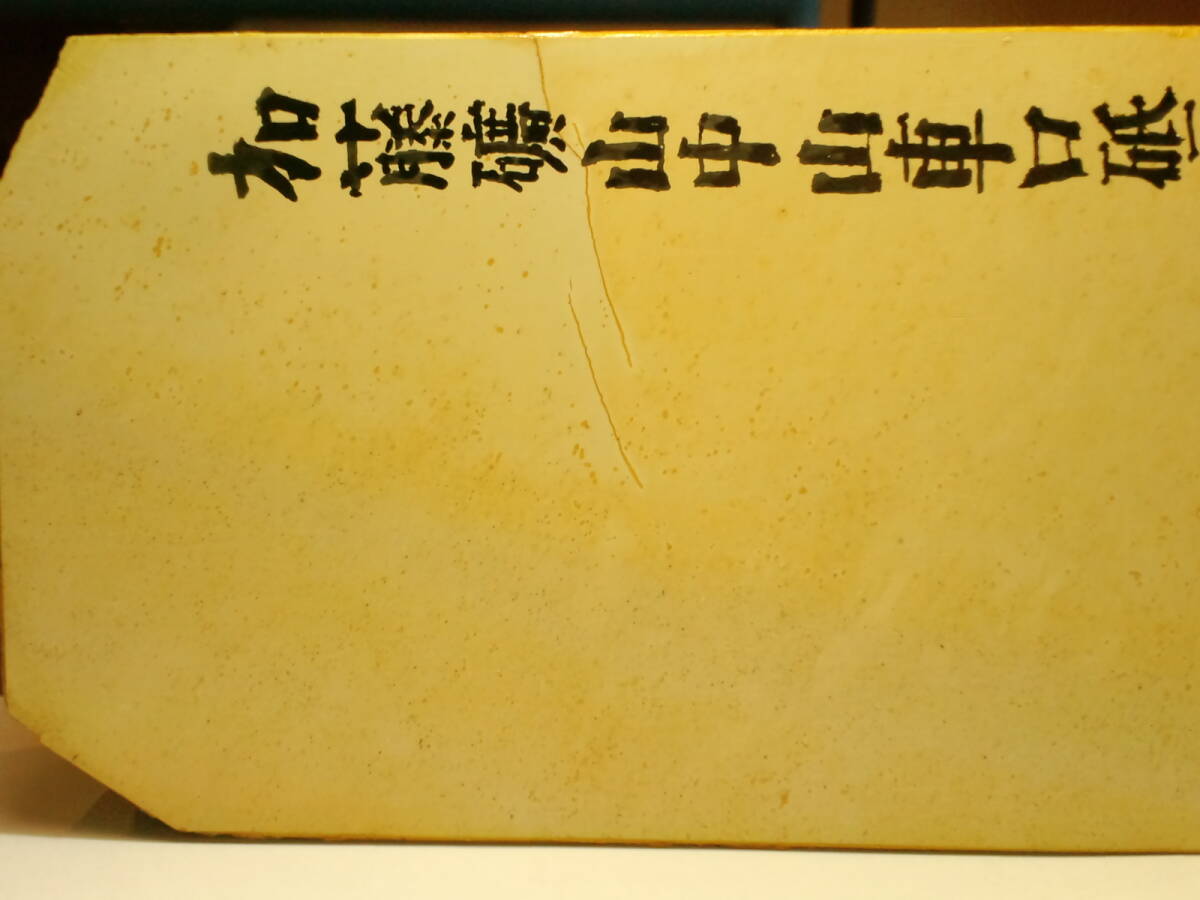 加藤礦山中山車口砥